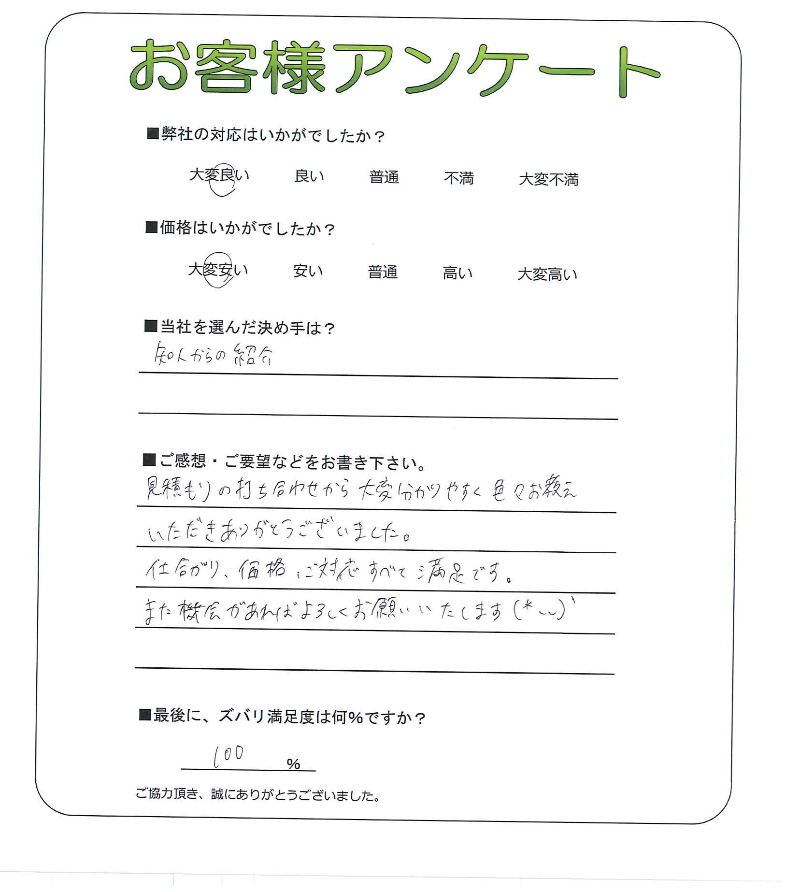 お客様アンケート
■弊社の対応はいかがでしたか？
大変良い 良い 普通 不満 大変不満
■価格はいかがでしたか？
大変安い 安い 普通 高い 大変高い
■当社を選んだ決め手は？
知人からの紹介
■ご感想・ご要望などをお書き下さい。
見積もりの打ち合わせから大変分かりやすく色々お教え
いただきありがとうございました。
仕上がり、価格、ご対応すべて満足です。
また機会があればよろしくお願いいたします(*ᴗᴗ)
■最後に、ズバリ満足度は何%ですか？
100 %
ご協力頂き、誠にありがとうございました。